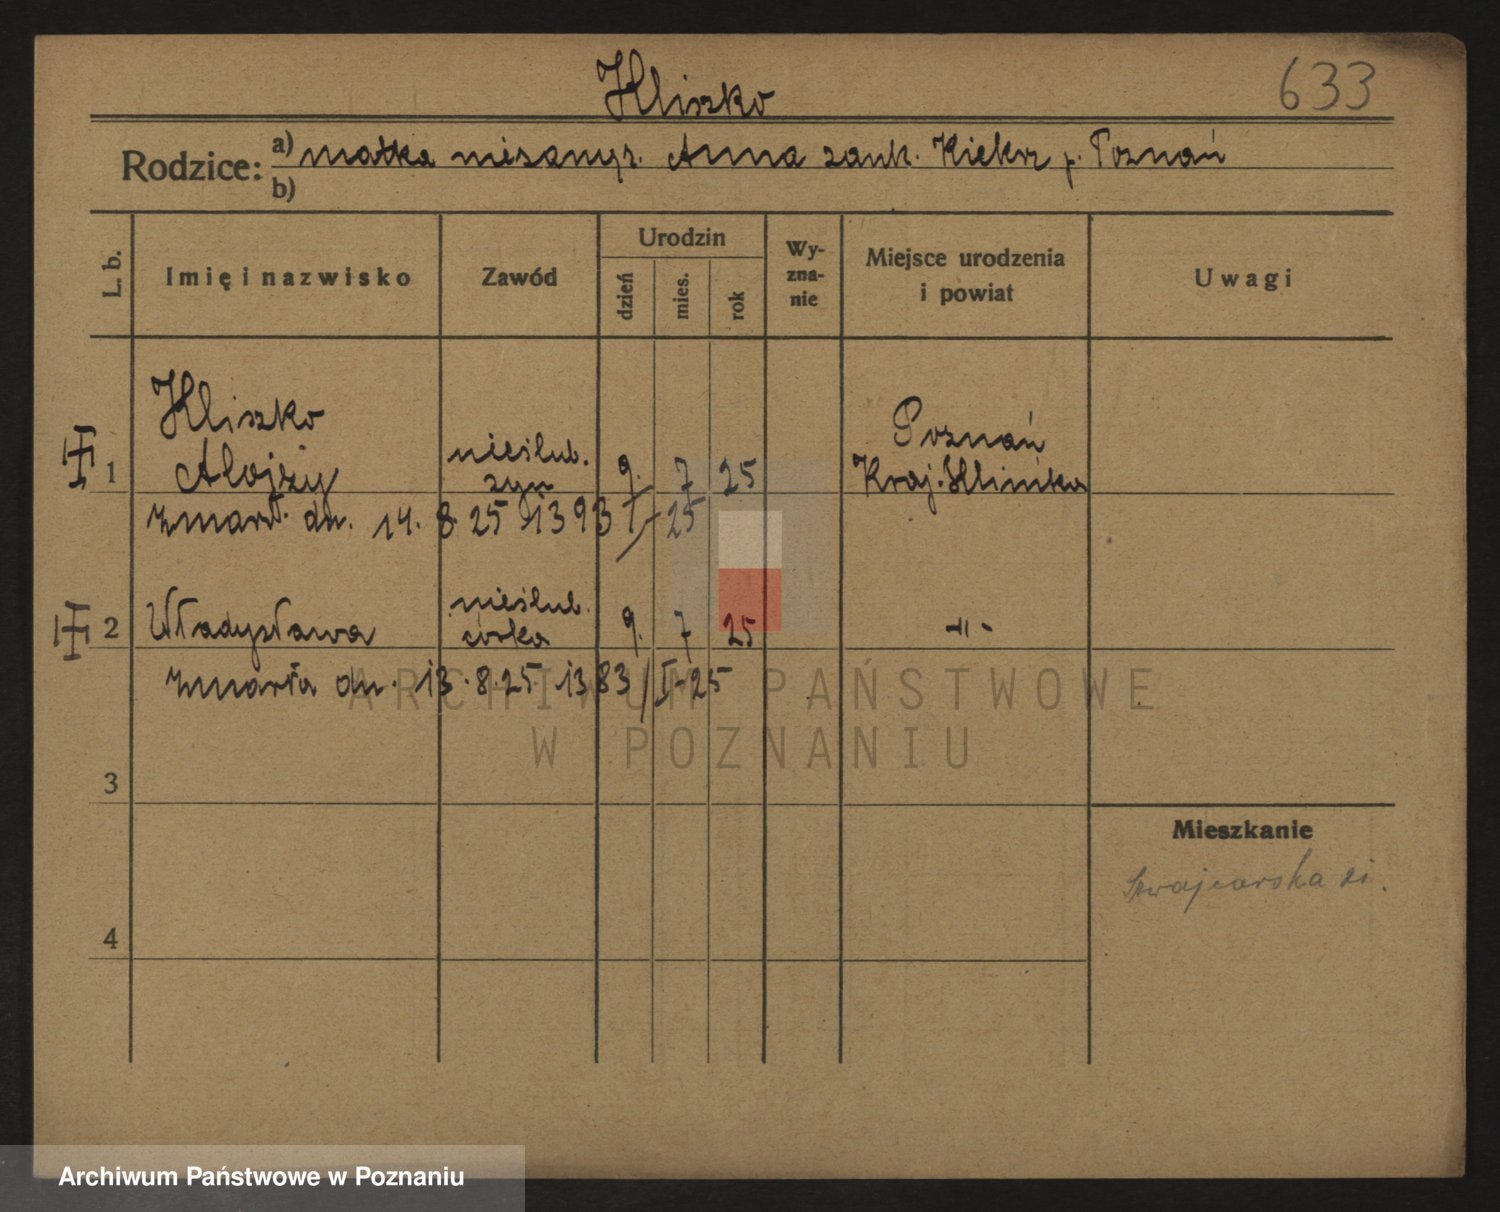 Kliszko
633
Rodzice: a) matka niezamęż. Anna zam. Kiekrz p. Poznań
b)
L. b.
Imię i nazwisko
Zawód
Urodzin
dzień
mies.
rok
Wy-
zna-
nie
Miejsce urodzenia
i powiat
Uwagi
Kliszko
1 Alojzy
nieślub.
syn
9. 7 25
Poznań
Kraj. Klinika
zmarł. dn. 14. 8. 25 1393 I-25
2 Władysława
nieślub.
córka
9. 7 25
-"-
zmarła dn. 13. 8. 25 1383/I-25
3
4
Mieszkanie
Szwajcarska
ARCHIWUM PAŃSTWOWE
W POZNANIU
Archiwum Państwowe w Poznaniu